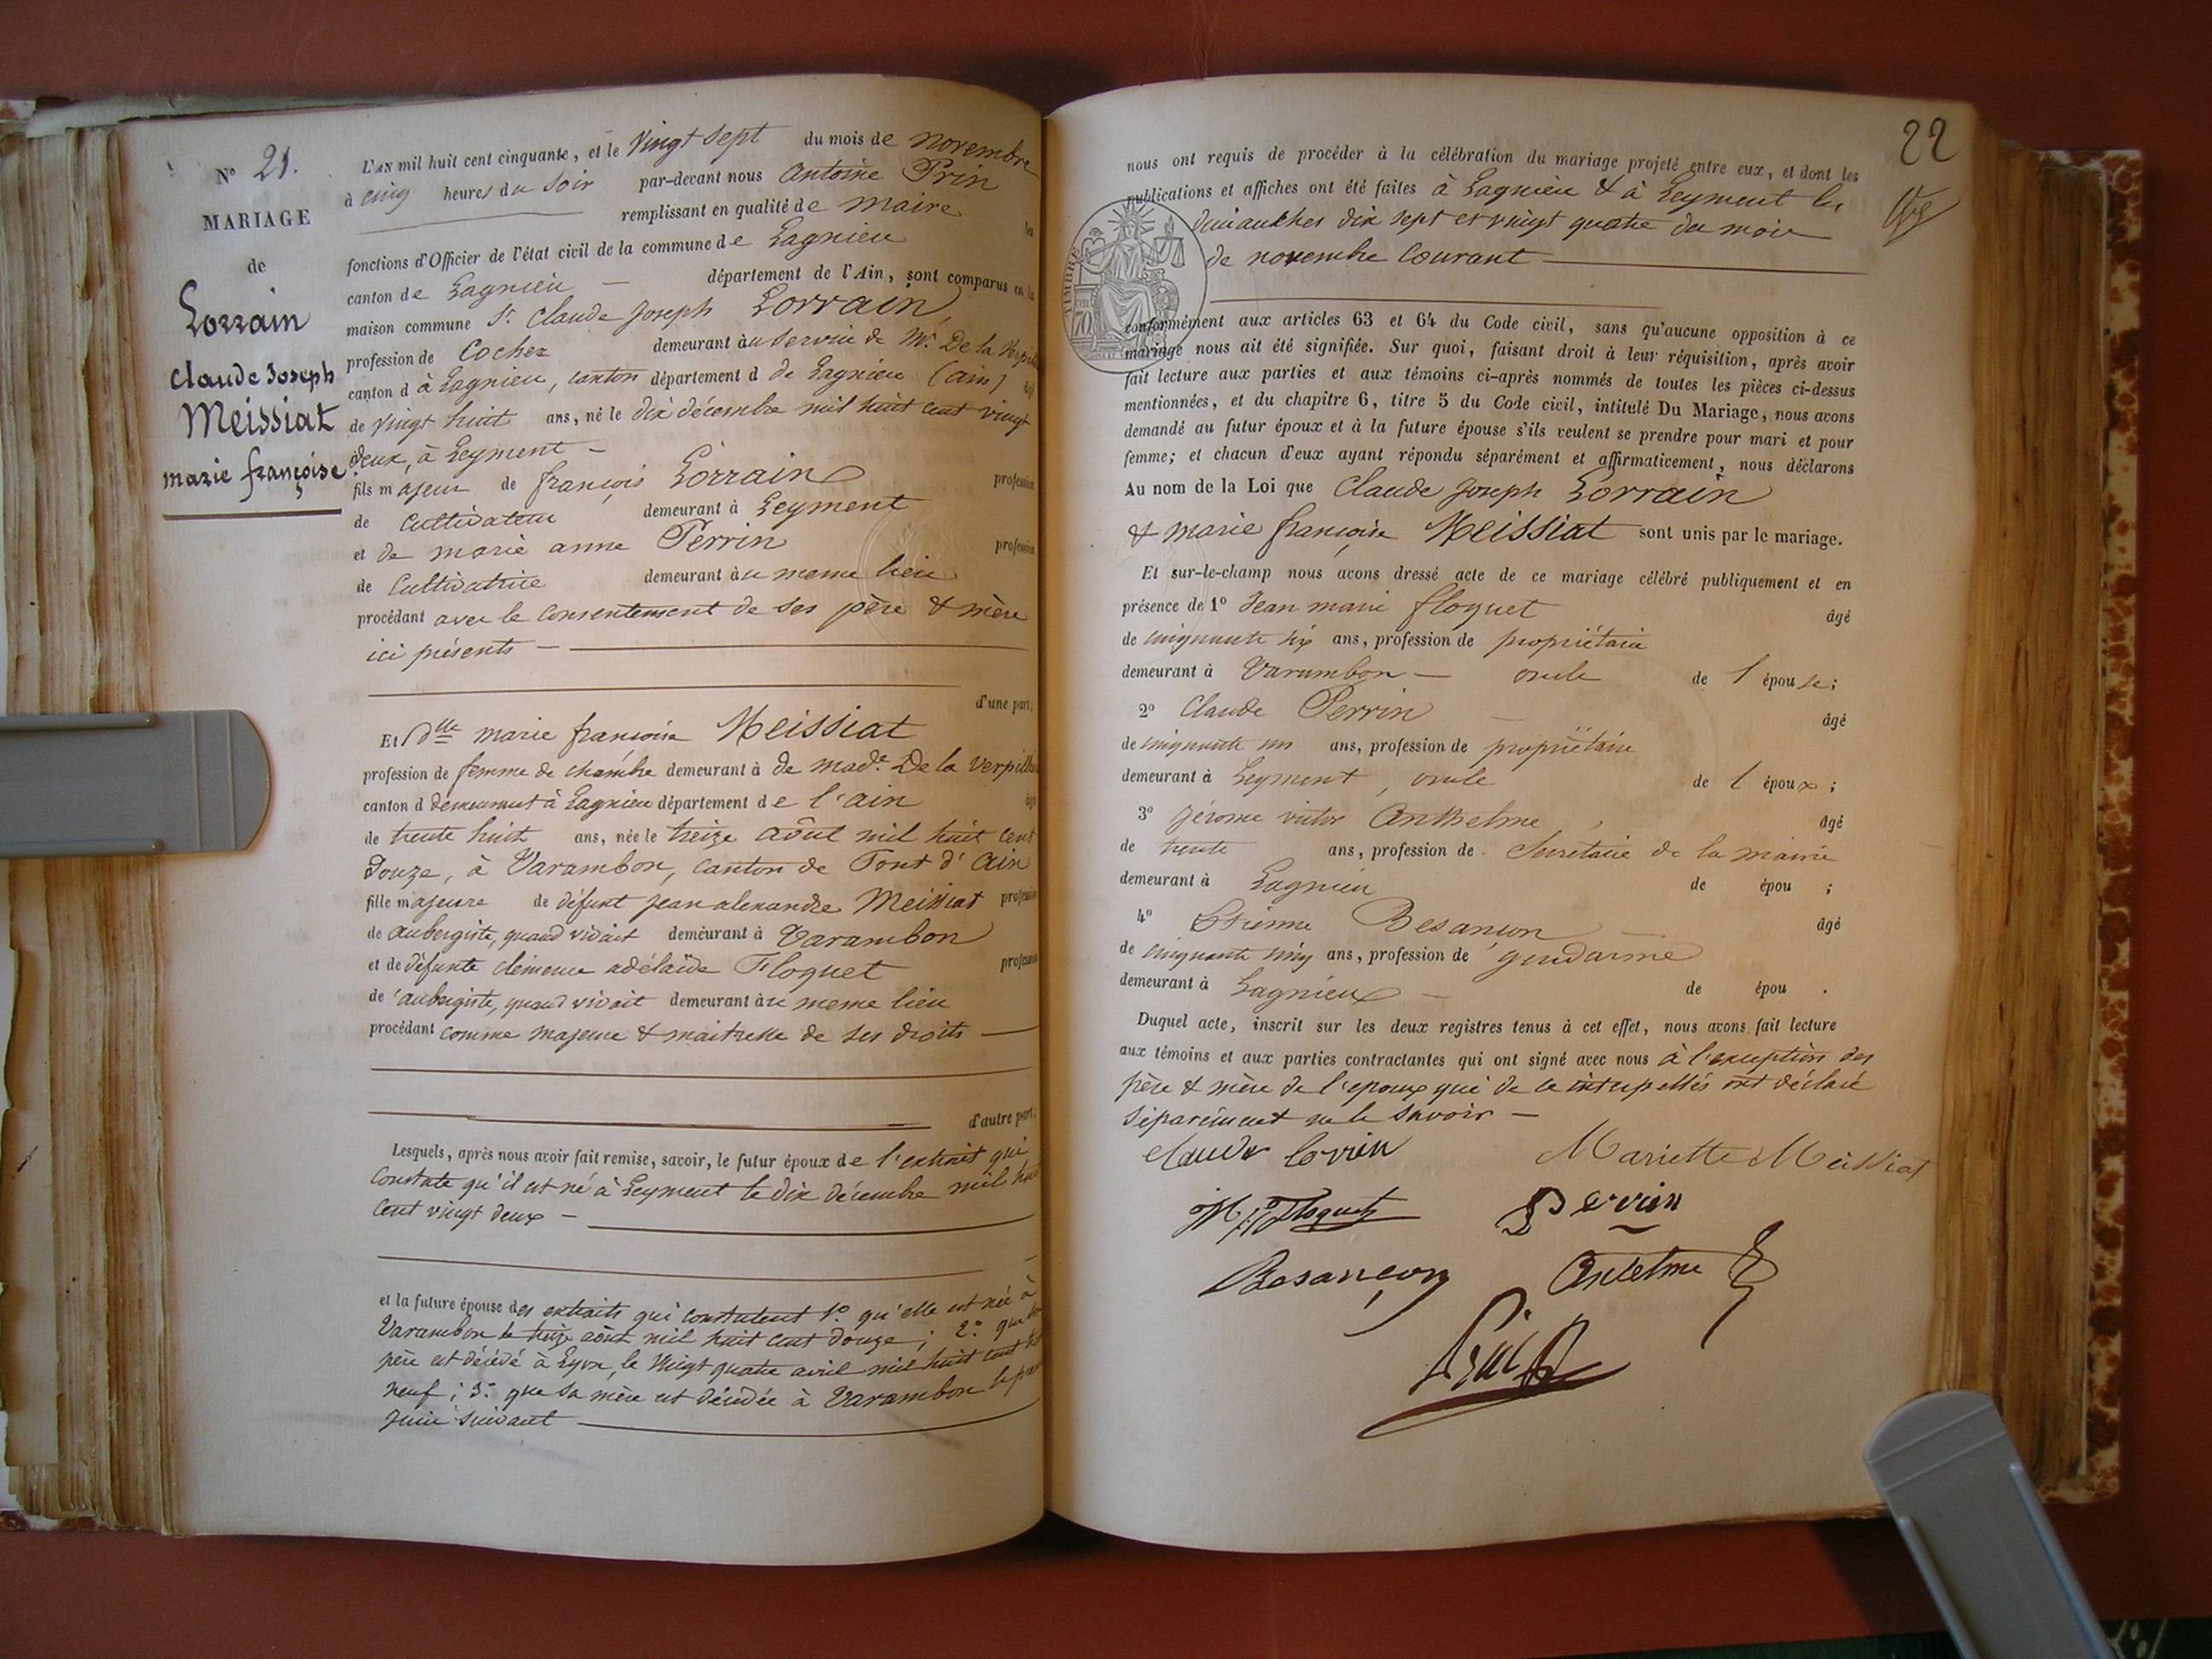 N° 21.
MARIAGE
de
Lorrain
claude Joseph
Meissiat
marie françoise
L'AN mil huit cent cinquante, et le Vingt sept du mois de novembre
à cinq heures du soir par-devant nous Antoine Prin
remplissant en qualité de maire les
fonctions d'Officier de l'état civil de la commune de Lagnieu
canton de Lagnieu – département de l'Ain, sont comparus en la
maison commune Sr. Claude Joseph Lorrain,
profession de Cocher demeurant au service de Mr. De la Verpill
canton d à Lagnieu, canton département d de Lagnieu (ain) âgé
de vingt huit ans, né le dix décembre mil huit cent vingt
deux, à Leyment –
fils majeur de françois Lorrain profession
de cultivateur demeurant à Leyment
et de marie anne Perrin profession
de Cultivatrice demeurant àu meme lieu
procédant avec le consentement de ses père & mère
ici présents —
d'une part;
Et dlle marie françoise Meissiat
profession de femme de chambre demeurant à de made. De la Verpillie
canton d demeurant à Lagnieu département de l'ain âgé
de trente huit ans, née le treize août mil huit cent
Douze, à Varambon, canton de Pont d'Ain
fille majeure de défunt jean alexandre Meissiat profession
de aubergiste, quand vivait demeurant à Varambon
et de défunte clémence adélaïde Floquet profession
de aubergiste, quand vivait demeurant àu meme lieu
procédant comme majeure & maitresse de ses droits —
d'autre part;
Lesquels, après nous avoir fait remise, savoir, le futur époux de l'extrait qui
constate qu'il est né à Leyment le dix décembre mil huit
cent vingt deux —
et la future épouse des extraits qui constatent 1° qu'elle est née à
Varambon le treize août mil huit cent douze; 2° que
père est décédé à Lyon, le vingt quatre avril mil huit cent
neuf; 3° que sa mère est décédée à Varambon le
juin suivant —
22
nous ont requis de procéder à la célébration du mariage projeté entre eux, et dont les
publications et affiches ont été faites à Lagnieu & à Leyment les
dimanches dix sept et vingt quatre du mois
de novembre courant —
TIMBRE
70
conformément aux articles 63 et 64 du Code civil, sans qu'aucune opposition à ce
mariage nous ait été signifiée. Sur quoi, faisant droit à leur réquisition, après avoir
fait lecture aux parties et aux témoins ci-après nommés de toutes les pièces ci-dessus
mentionnées, et du chapitre 6, titre 5 du Code civil, intitulé Du Mariage, nous avons
demandé au futur époux et à la future épouse s'ils veulent se prendre pour mari et pour
femme; et chacun d'eux ayant répondu séparément et affirmativement, nous déclarons
Au nom de la Loi que Claude Joseph Lorrain
& marie françoise Meissiat sont unis par le mariage.
Et sur-le-champ nous avons dressé acte de ce mariage célébré publiquement et en
présence de 1° Jean marie floquet âgé
de cinquante six ans, profession de propriétaire
demeurant à Varambon — oncle de l épouse;
2° Claude Perrin — âgé
de cinquante un ans, profession de propriétaire
demeurant à Leyment, oncle de l époux;
3° jérome victor Anthelme, âgé
de trente ans, profession de Secrétaire de la mairie
demeurant à Lagnieu de épou ;
4° Etienne Besançon — âgé
de cinquante cinq ans, profession de gendarme
demeurant à Lagnieu — de épou .
Duquel acte, inscrit sur les deux registres tenus à cet effet, nous avons fait lecture
aux témoins et aux parties contractantes qui ont signé avec nous à l'exception des
père & mère de l'epoux qui de ce interpellés ont déclaré
séparément ne le savoir —
claude lorrin Mariette Meissiat
Floquet Perrin
Besançon Antelme
Prin